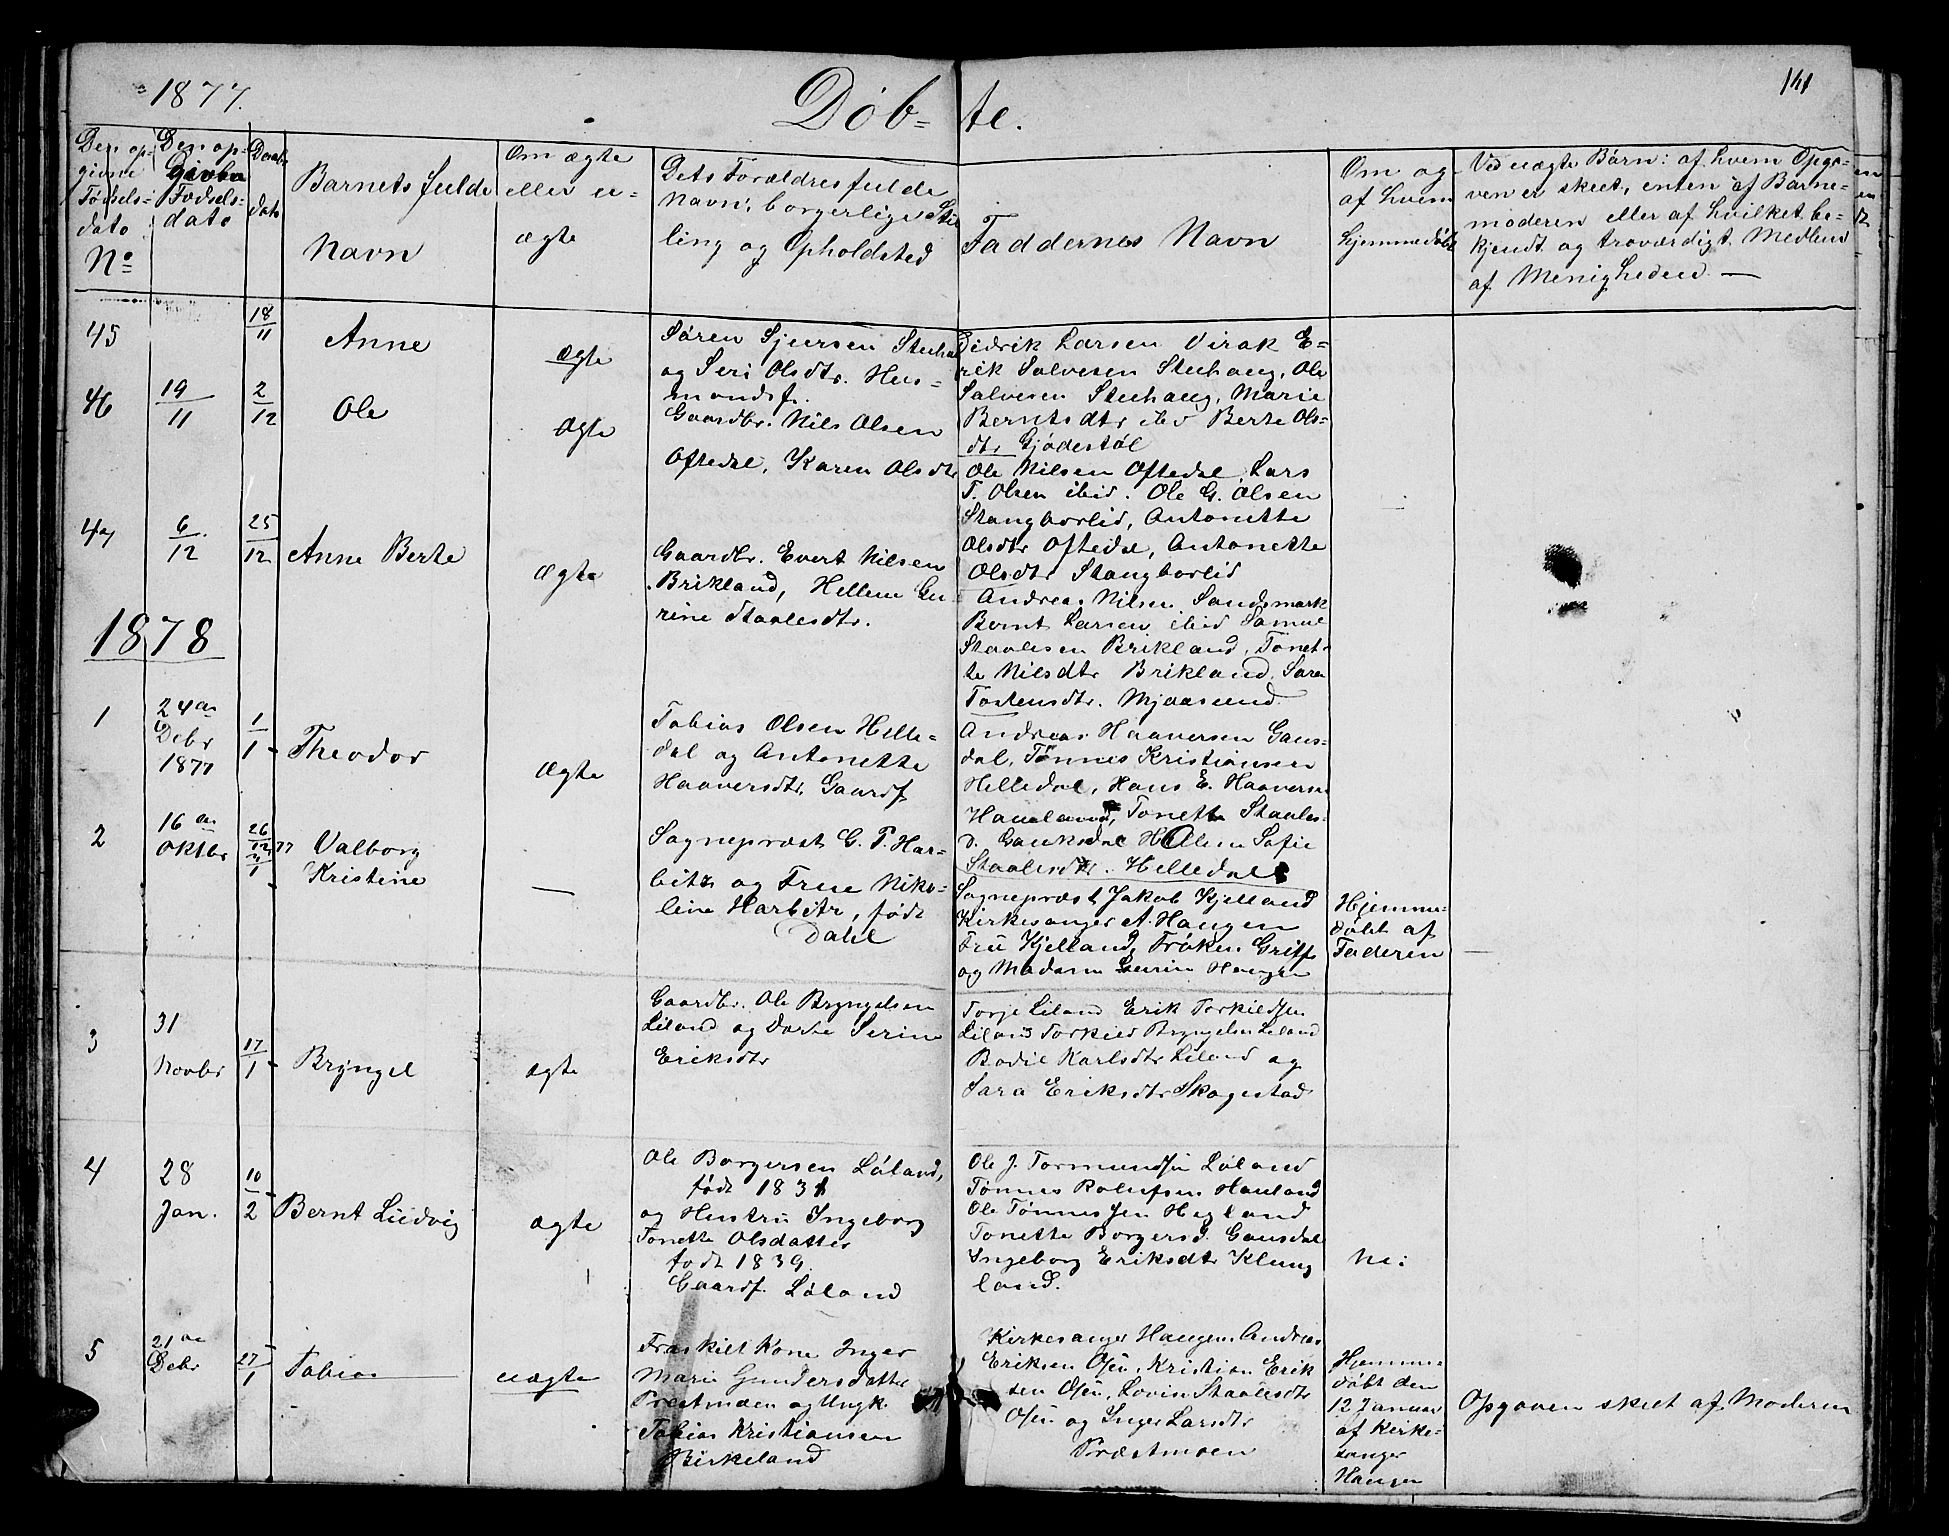 1877.
Döb-
te.
141
Den op-
givne
Födsels-
dato
No
Den op-
Givne
Födsels-
dato
Daabs
dato
Barnets fulde
Navn
Om ægte
eller u-
ægte
Dets Forældres fulde
Navn, borgerlige Stil-
ling og Opholdsted
Faddernes Navn
Om og
af hvem
hjemmedöbt
Ved uægte Börn: af hvem Opga-
ven er skeet, enten af Barne-
moderen eller af hvilket be-
kjendt og troværdigt Medlem
af Menigheden. —
45
18/11
Anne
Ægte
Sören Sjursen
og Seri Olsdtr. Hus-
mandsf.
Didrik Larsen Virak E-
rik Salvesen Stuhaug, Ole
Salvesen Stuhaug, Marie
Berntsdtr ibid Berte Ols-
dtr Gjödestöl
46
19/11
2/12
Ole
Ægte
Gaardbr. Nils Olsen
Oftedal, Karen Olsdtr
Ole Nilsen Oftedal, Lars
T. Olsen ibid. Ole G. Olsen
Stangborlid, Antonette
Olsdtr Oftedal, Antonette
Olsdtr Stangborlid
47
6/12
25/12
Anne Berte
Ægte
Gaardbr. Evert Nilsen
Brikland, Hellene Gu-
rine Staalesdtr.
Andreas Nilsen Sandsmark
Bernt Larsen ibid Samuel
Staalesen Brikland, Tonet-
te Nilsdtr Brikland, Sara
Tostensdtr. Mjaasund
1878
1
24de
Debr
1877
1/1
Theodor
Ægte
Tobias Olsen Helle-
dal og Antonette
Haaversdtr. Gaardf
Andreas Haaversen Gaus-
dal, Tönnes Kristiansen
Helledal, Hans E. Haaversen
Haueland, Tonette Staales-
d. Gauksdal Helene Sofie
Staalesdtr. Helledal
2
16de
Oktbr
26/12 77
Valborg
Kristine
—
Sogneprest G. P. Har-
bitz og Frue Niko-
line Harbitz, född
Dahl
Sogneprest Jakob Kjelland
Kirkesanger A. Haugen
Fru Kjelland, Fröken Griff
og Madam Haugen
Hjemme-
döbt af
Faderen
3
31
Novbr
17/1
Bryngel
ægte
Gaardbr. Ole Bryngelsen
Liland og Dorte Serine
Eriksdtr
Torje Liland Erik Torkildsen
Liland Torkild Bryngelsen Liland
Bodil Karlsdtr Liland og
Sara Eriksdtr Skogestad
4
28
Jan.
10/2
Bernt Ludvig
ægte
Ole Borgersen Löland,
född 1831
og Hustru Ingeborg
Tonette Olsdatter
född 1839.
Gaardf. Löland
Ole J. Tormundsen Löland
Tönnes Rolufsen Hauland
Ole Tönnessen Hegland
Tonette Borgersd. Gausdal
Ingeborg Eriksdtr Klung
land.
Ne:
5
21de
Debr
27/1
Tobias
uægte
Fraskilt Kone Inger
Marie Gundersdatter
Prestmoen og Ungk.
Tobias Kristiansen
Birkeland
Kirkesanger Haugen Andreas
Eriksen Osen, Kristian Erik
sen Osen, Lovise Staalesdtr
Osen og Inger Larsdtr
Præstmoen
Hjemme-
döbt den
12 Januar
af Kirke-
sanger
Haugen
Opgaven skeet af Moderen